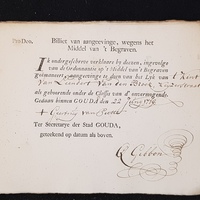 Pro Deo. Billiet van aangeevinge, wegens het
Middel van 't Begraven.
IK ondergeschreve verklaare by deezen, ingevolge
van de Ordonnantie op 't Middel van 't begraven
geëmaneert, aangeevinge te doen van het Lyk van 't Kint
van Leendert Van den Broek
als gehoorende onder de Classis van d'onvermogende.
Gedaan binnen GOUDA, den 22
Ter Secretarye der Stad GOUDA,
geteekend op datum als boven.